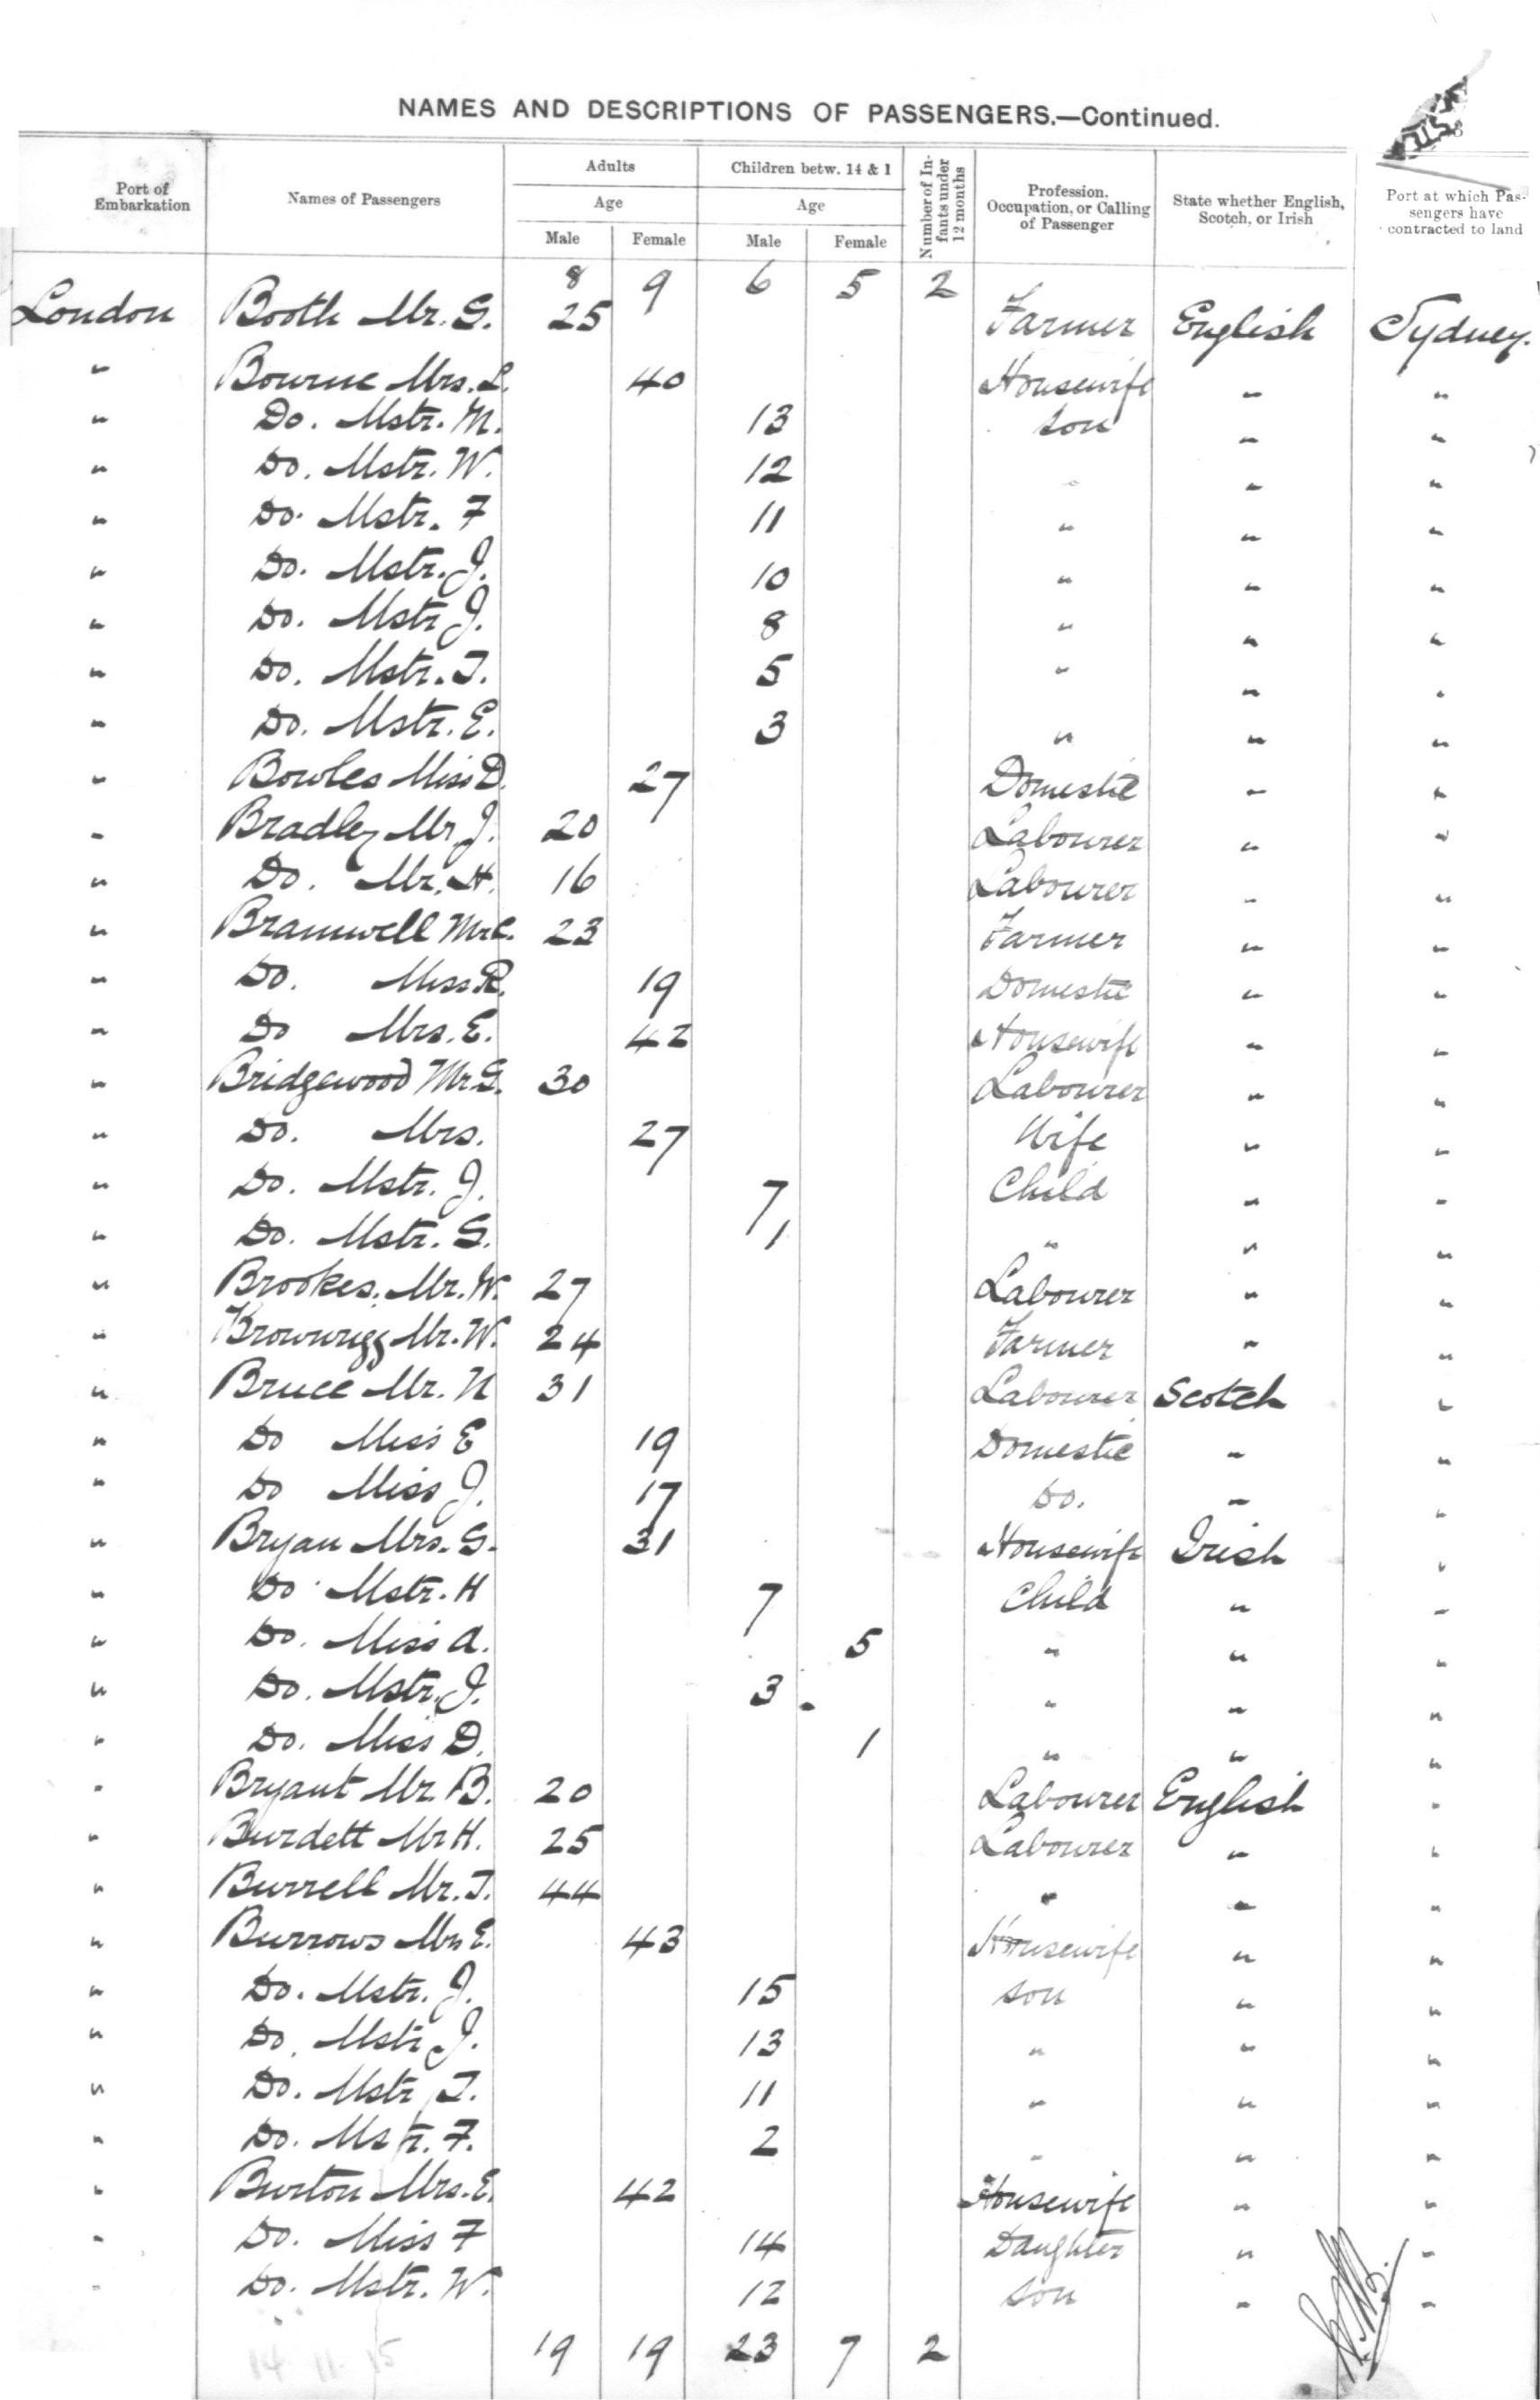 NAMES AND DESCRIPTIONS OF PASSENGERS.—Continued.
Port of Embarkation | Names of Passengers | Adults Age Male | Female | Children betw. 14 & 1 Age Male | Female | Number of Infants under 12 months | Profession, Occupation, or Calling of Passenger | State whether English, Scotch, or Irish | Port at which Passengers have contracted to land
8 9 6 5 2
London Booth Mr. G. 25 Farmer English Sydney.
" Bourne Mrs. L. 40 Housewife " "
" Do. Mstr. M. 13 Son " "
" Do. Mstr. W. 12 " " "
" Do. Mstr. F 11 " " "
" Do. Mstr. J. 10 " " "
" Do. Mstr J. 8 " " "
" Do. Mstr. T. 5 " " "
" Do. Mstr. E. 3 " " "
" Bowles Miss D. 27 Domestic " "
" Bradley Mr J. 20 Labourer " "
" Do. Mr. H. 16 Labourer " "
" Bramwell Mr C. 23 Farmer " "
" Do. Miss R. 19 Domestic " "
" Do Mrs. E. 42 Housewife " "
" Bridgewood Mr. G. 30 Labourer " "
" Do. Mrs. 27 Wife " "
" Do. Mstr. J. 7 Child " "
" Do. Mstr. G. 1 " " "
" Brookes. Mr. W. 27 Labourer " "
" Brownrigg Mr. W. 24 Farmer " "
" Bruce Mr. N 31 Labourer Scotch "
" Do Miss E 19 Domestic " "
" Do Miss J. 17 Do. " "
" Bryan Mrs. G. 31 Housewife Irish "
" Do Mstr. H 7 Child " "
" Do. Miss A. 5 " " "
" Do. Mstr. J. 3 " " "
" Do. Miss D. 1 " " "
" Bryant Mr. B. 20 Labourer English "
" Burdett Mr H. 25 Labourer " "
" Burrell Mr. T. 44 " " "
" Burrows Mrs E. 43 Housewife " "
" Do. Mstr. J. 15 Son " "
" Do. Mstr J. 13 " " "
" Do. Mstr T. 11 " " "
" Do. Mstr. F. 2 " " "
" Burton Mrs. E. 42 Housewife " "
" Do. Miss F 14 Daughter " "
" Do. Mstr. W. 12 Son " "
19 19 23 7 2
14 11 15